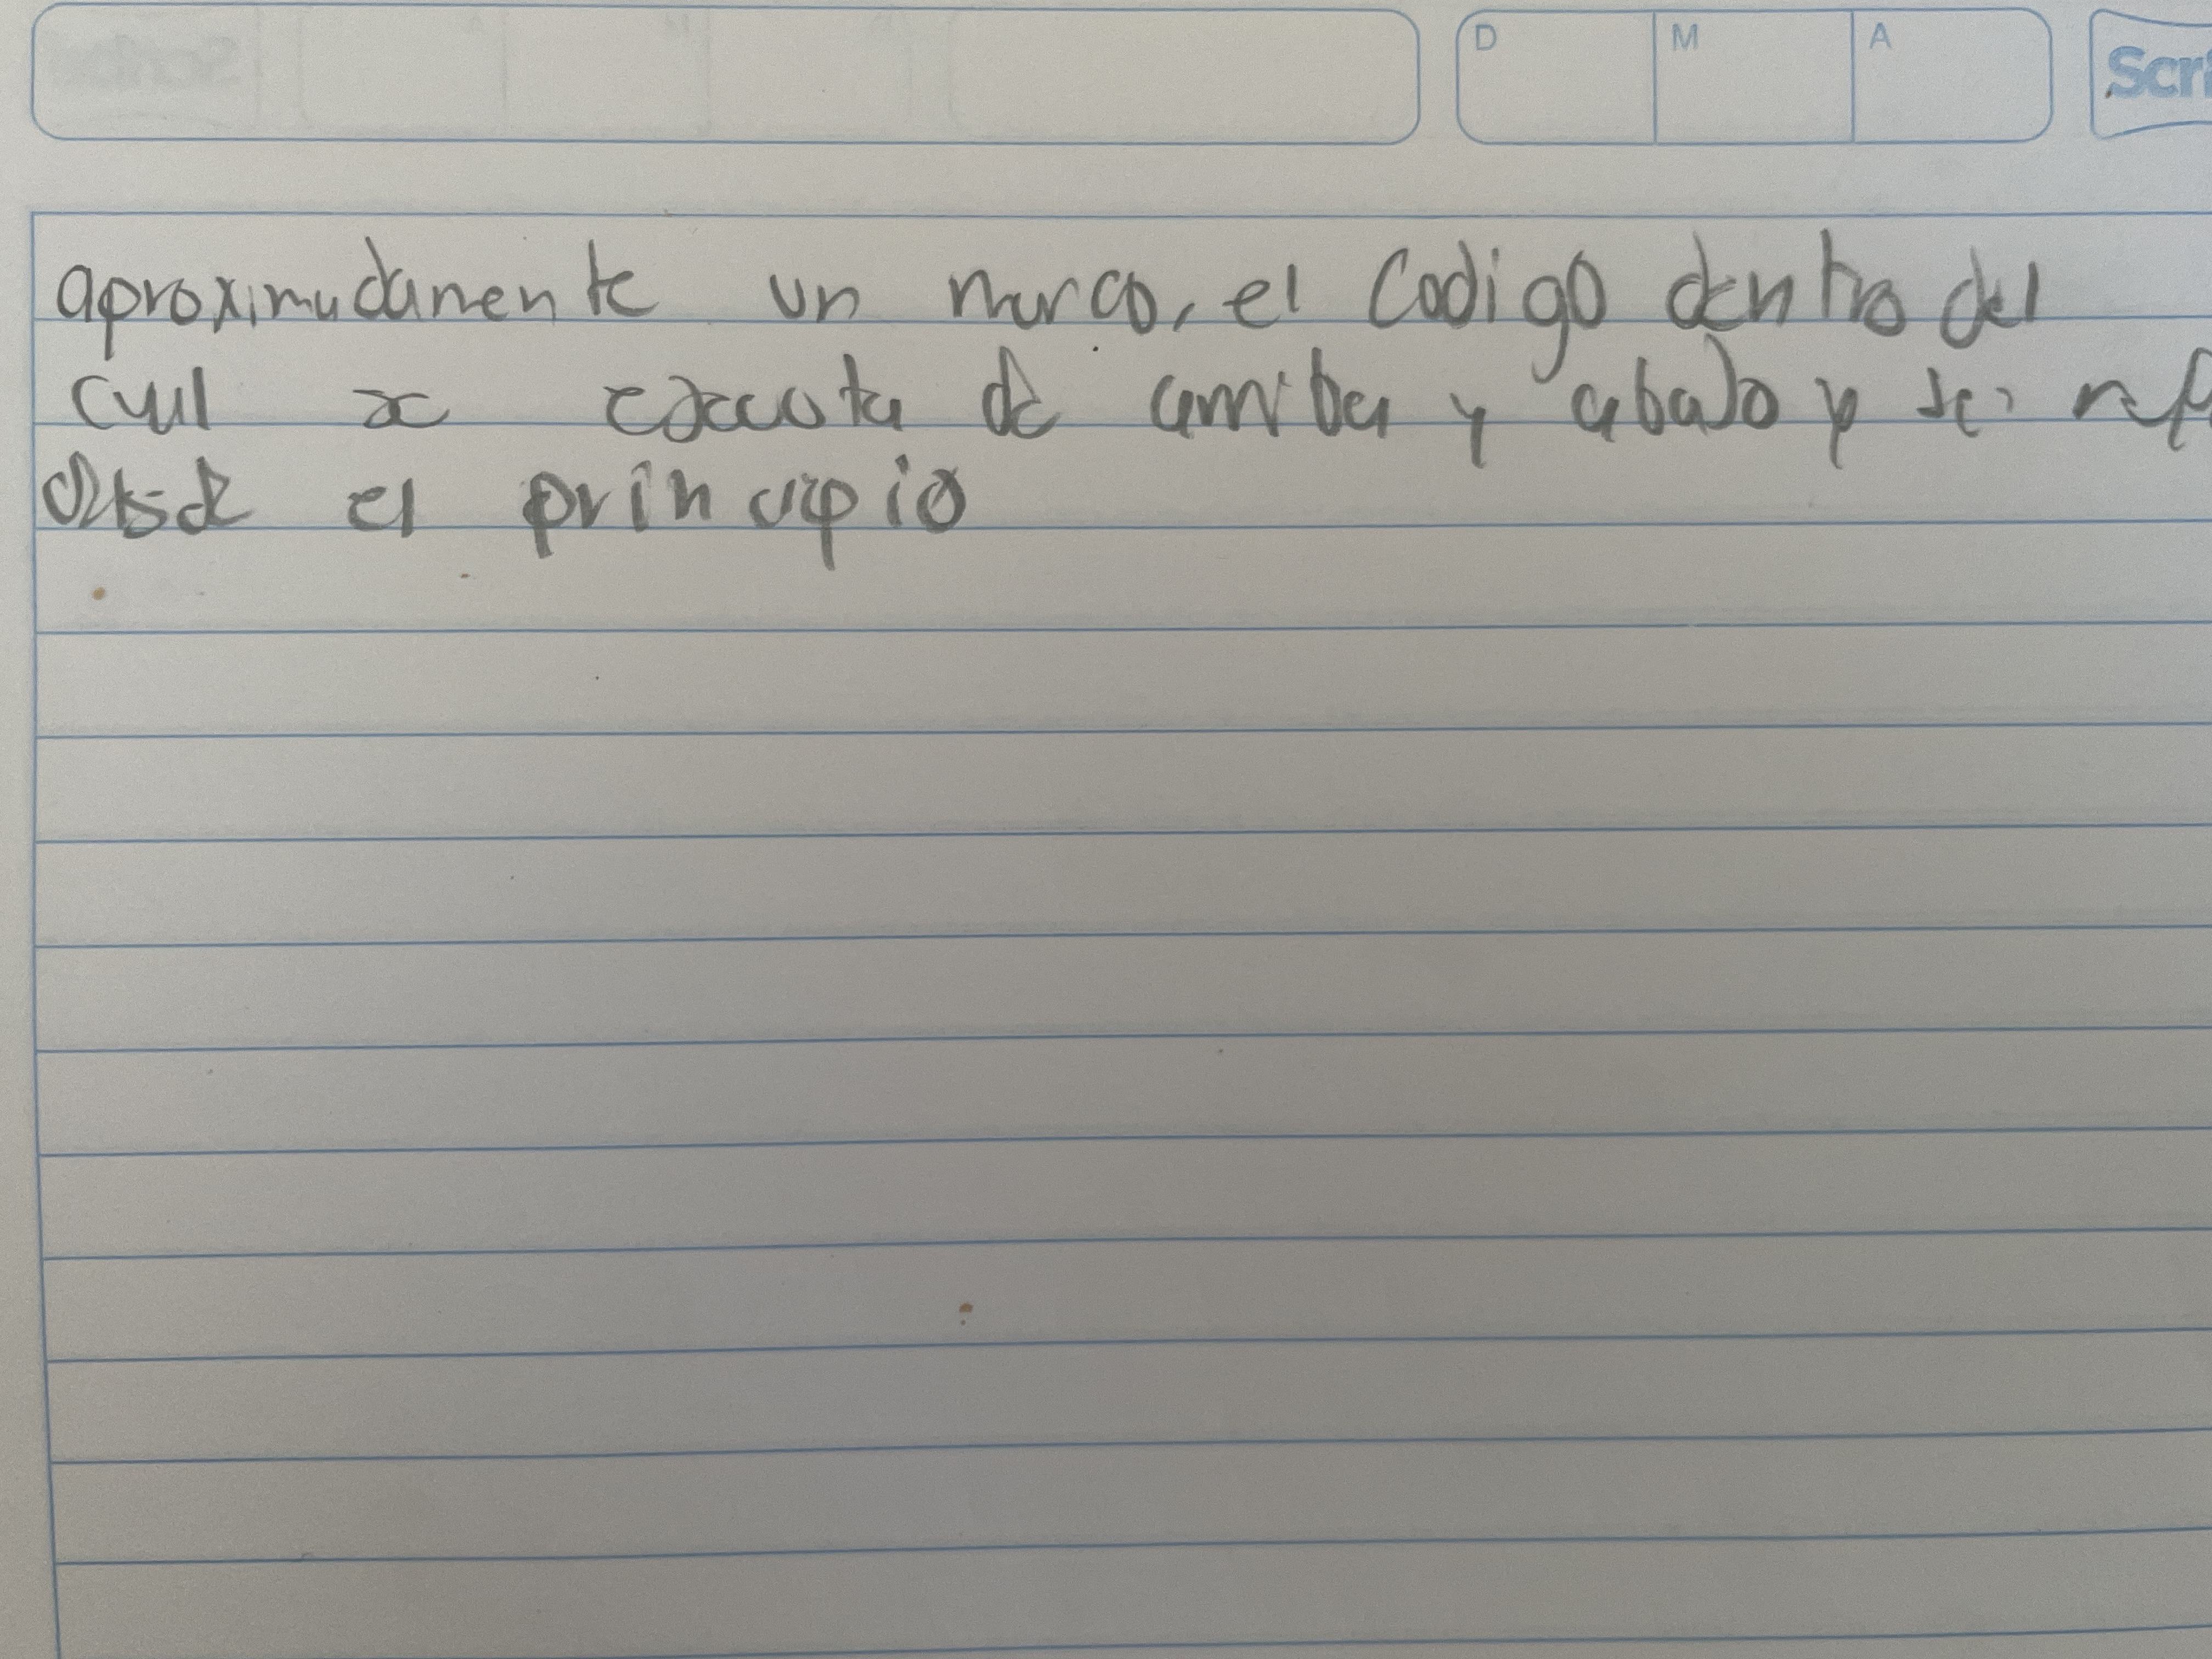 D M A
aproximadamente un marco, el Codigo dentro del
cual se ejecuta de arriba y abajo y se
desde el principio